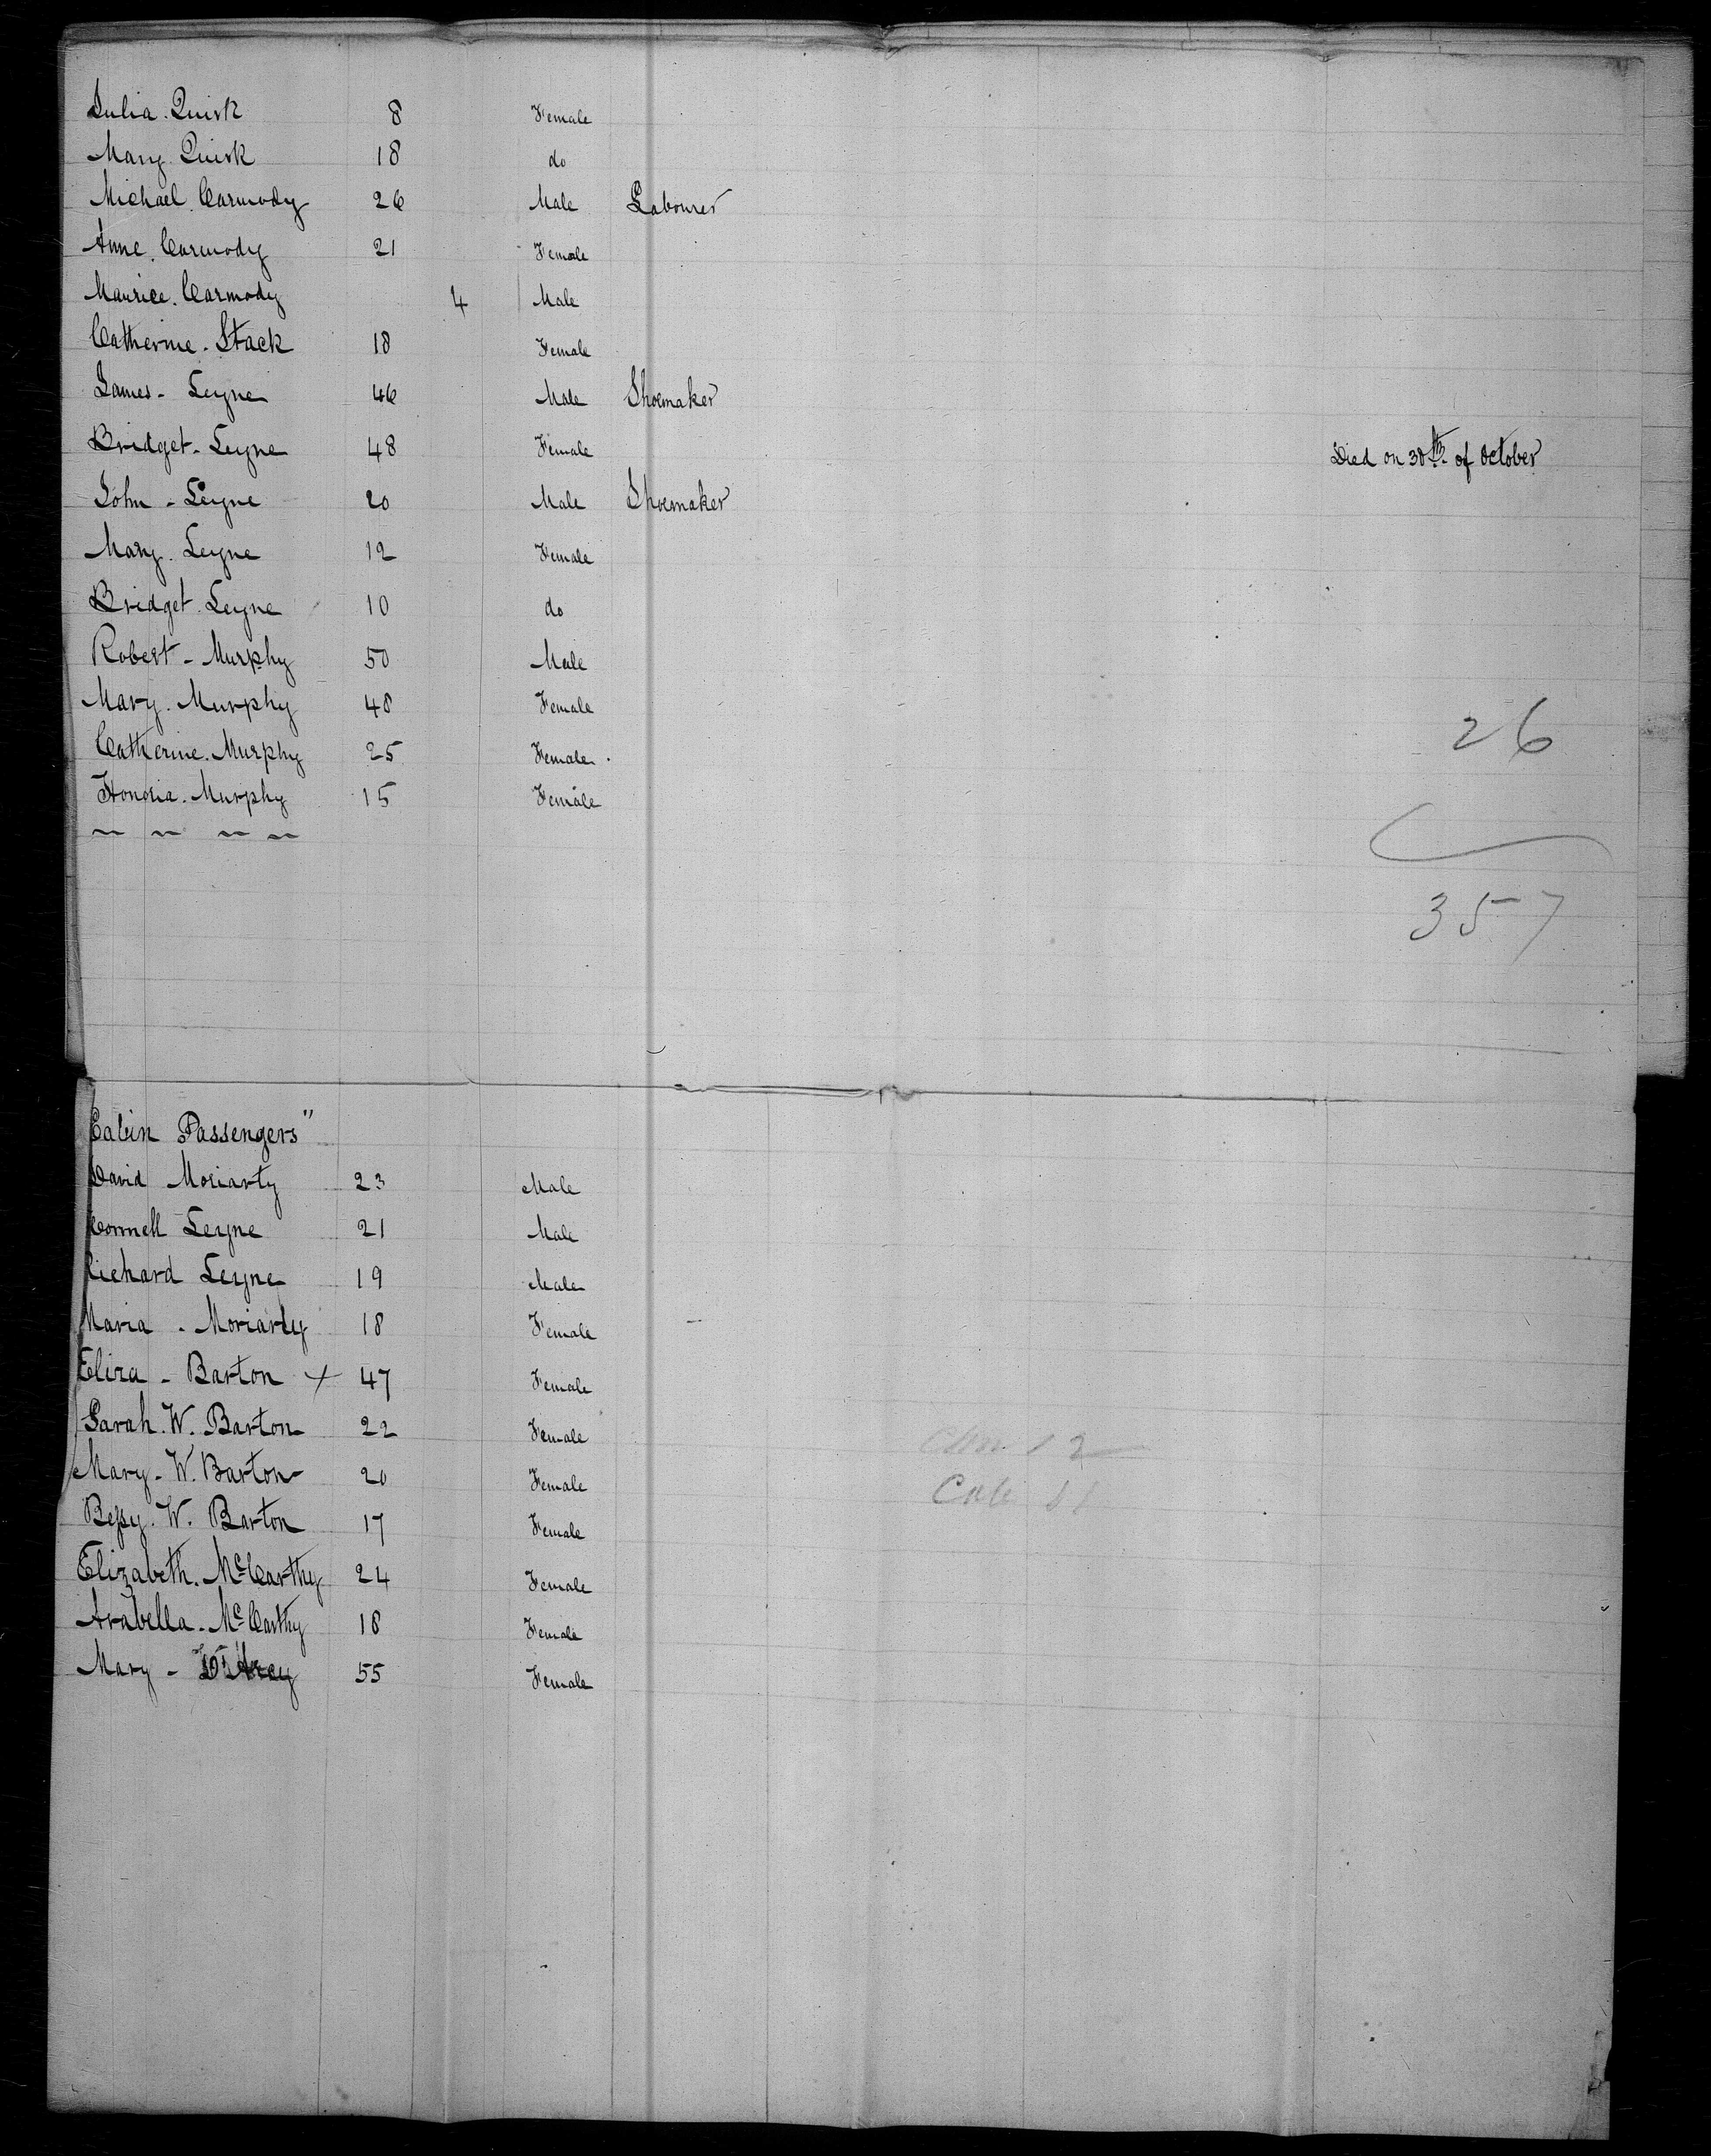 Julia. Quirk 8 Female
Mary. Quirk 18 do
Michael. Carmody 26 Male Labourer
Anne. Carmody 21 Female
Maurice. Carmody 4 Male
Catherine. Stack 18 Female
James - Leyne 46 Male Shoemaker
Bridget - Leyne 48 Female Died on 30th of October
John - Leyne 20 Male Shoemaker
Mary. Leyne 12 Female
Bridget. Leyne 10 do
Robert - Murphy 50 Male
Mary. Murphy 48 Female
Catherine. Murphy 25 Female
Honoria. Murphy 15 Female
26
357
Cabin Passengers"
David Moriarty 23 Male
Connell Leyne 21 Male
Richard Leyne 19 Male
Maria - Moriarty 18 Female
Eliza - Barton + 47 Female
Sarah. W. Barton 22 Female
Mary - W. Barton 20 Female
Bessy. W. Barton 17 Female
Elizabeth. McCarthy 24 Female
Arabella - McCarthy 18 Female
Mary - D'Arcy 55 Female